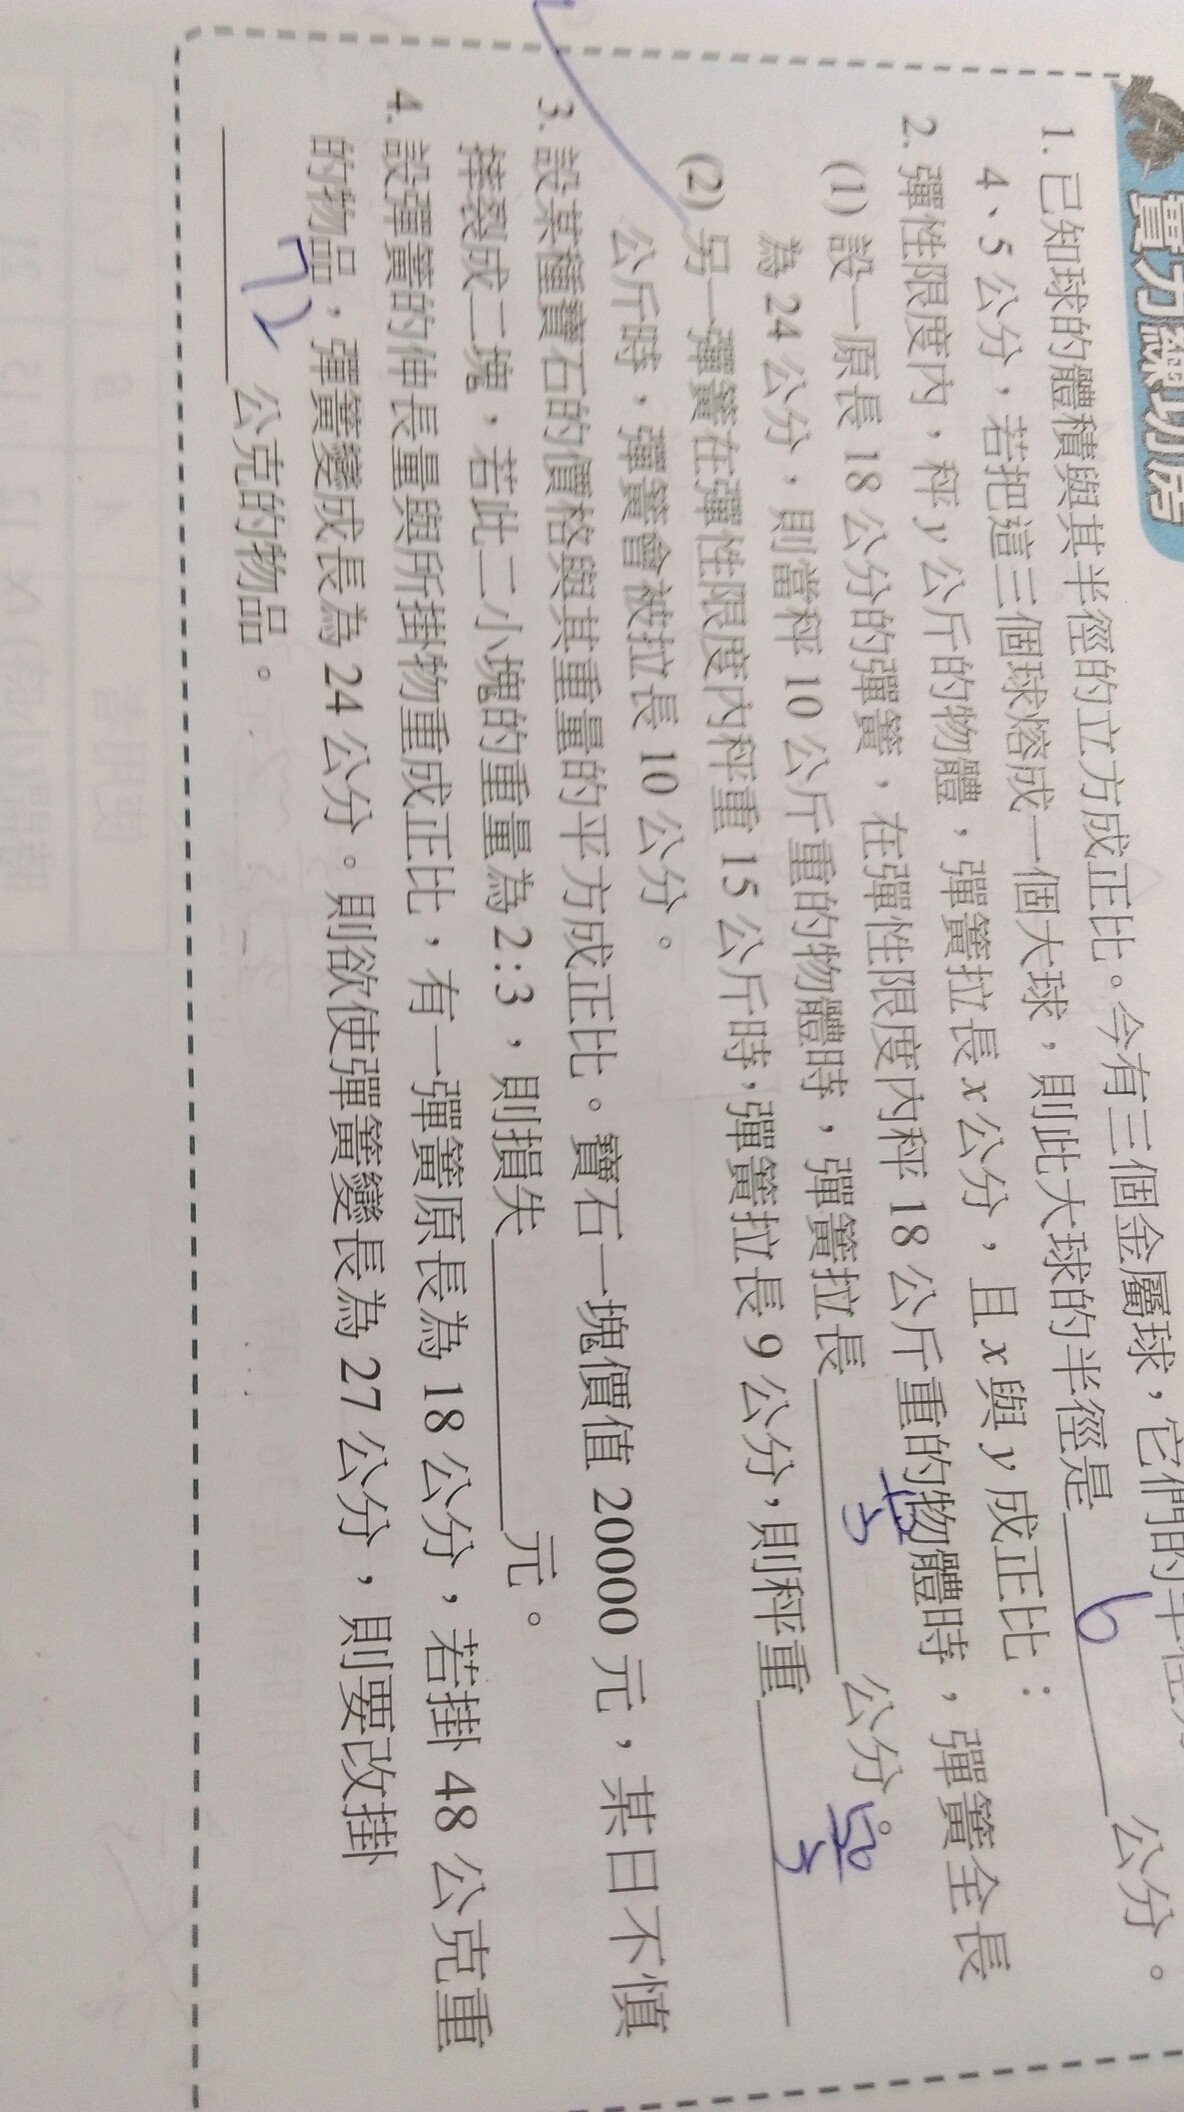 實力練功房
1. 已知球的體積與其半徑的立方成正比。今有三個金屬球，它們的半徑
4、5 公分，若把這三個球熔成一個大球，則此大球的半徑是 6 公分。
2. 彈性限度內，秤 y 公斤的物體，彈簧拉長 x 公分，且 x 與 y 成正比：
(1) 設一原長 18 公分的彈簧，在彈性限度內秤 18 公斤重的物體時，彈簧全長
為 24 公分，則當秤 10 公斤重的物體時，彈簧拉長 公分。
(2) 另一彈簧在彈性限度內秤重 15 公斤時，彈簧拉長 9 公分，則秤重
公斤時，彈簧會被拉長 10 公分。
3. 設某種寶石的價格與其重量的平方成正比。寶石一塊價值 20000 元，某日不慎
摔裂成二塊，若此二小塊的重量為 2:3，則損失 元。
4. 設彈簧的伸長量與所掛物重成正比，有一彈簧原長為 18 公分，若掛 48 公克重
的物品，彈簧變成長為 24 公分。則欲使彈簧變長為 27 公分，則要改掛
72 公克的物品。